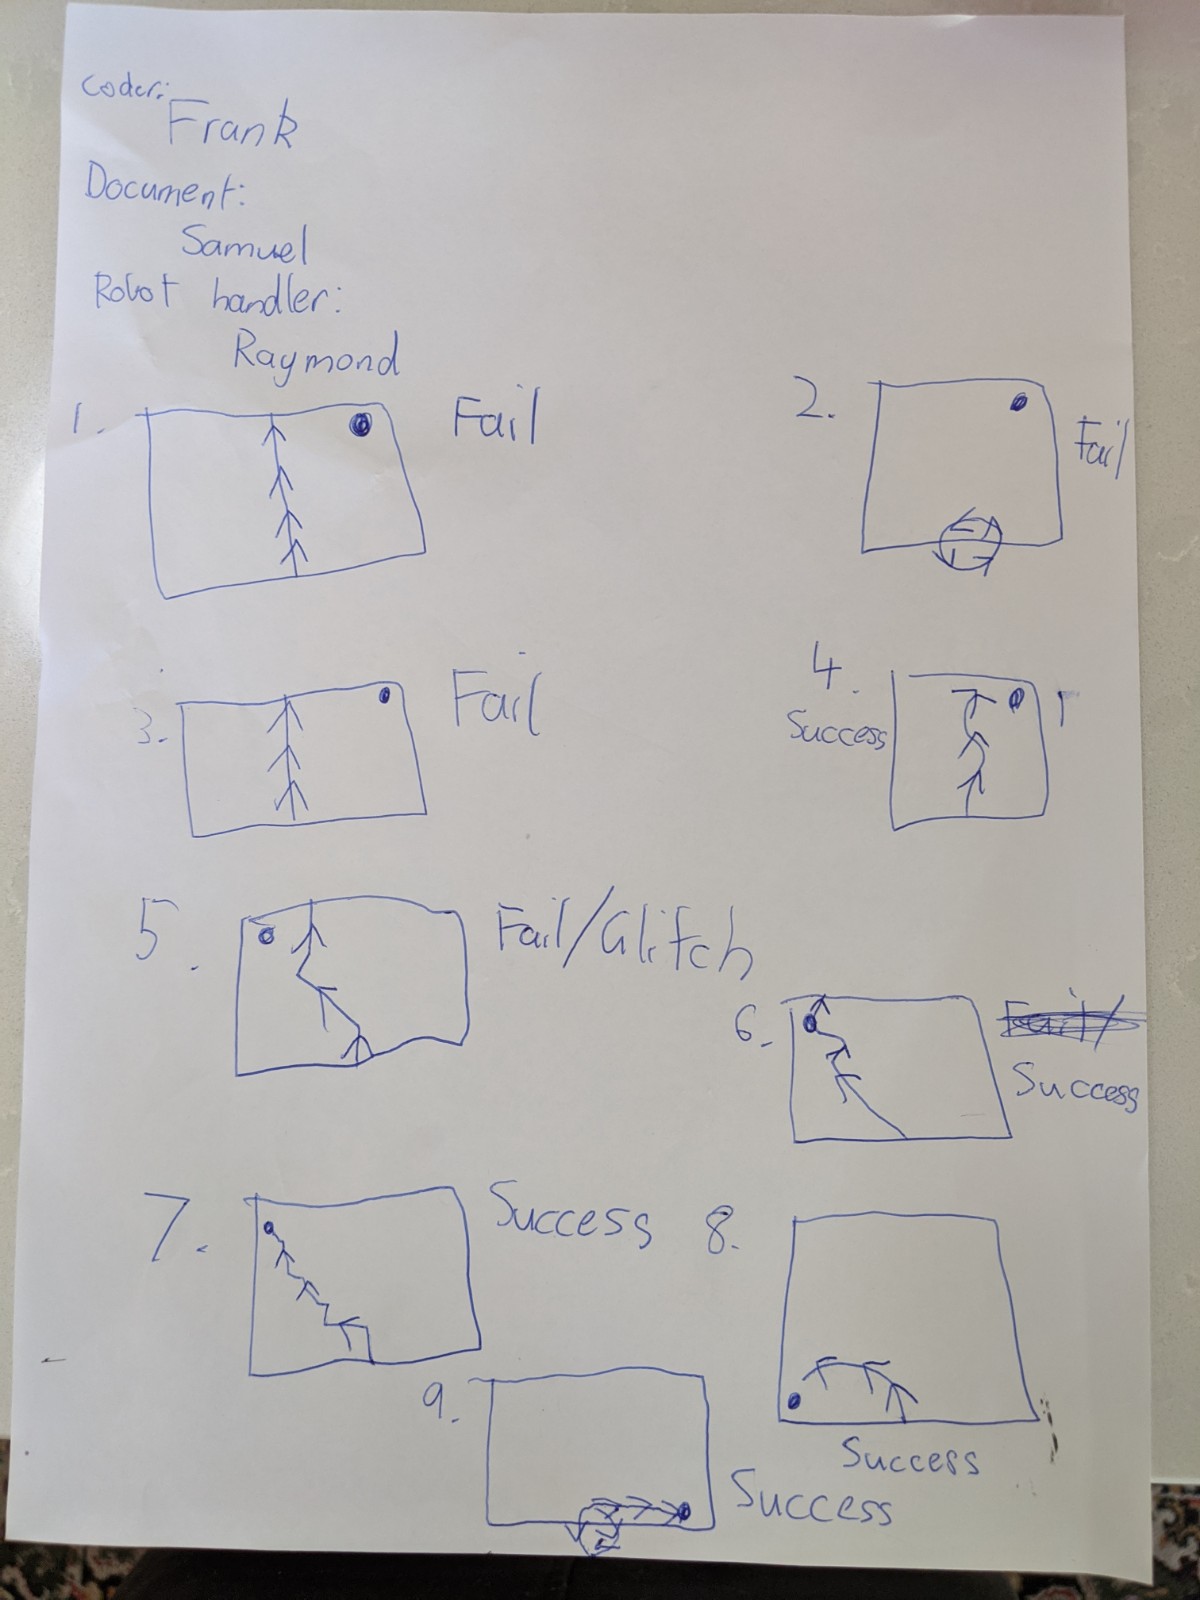 Coder:
Frank
Document:
Samuel
Robot handler:
Raymond
1. Fail
2. Fail
3. Fail
4. Success
5. Fail/Glitch
6. Fail/
Success
7. Success
8. Success
9. Success